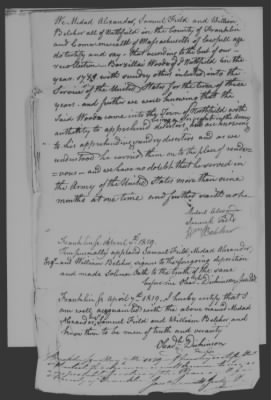 We Medad Alexander, Samuel Field and William
Belcher all of Northfield in the County of Franklin
and Commonwealth of Massachusetts of lawful age
do testify and say - that according to the best of our
recollection Barzillai Woods of Northfield in the
year 1782 with sundry other inlisted into the
Service of the United States for the term of three
years. and further we well knowing that the
Said Woods came into the Town of Northfield with
authority to apprehend deserters
to his apprehending sundry deserters and as we
understood he carried them on to the place of rendez=
=vous - and we have no doubt that he served in
the Army of the United States more than nine
months at one time and further saith not
Medad Alexander
Samuel Field
Wm Belcher
Franklin Ss April 7th 1819.
Then personally appeared Samuel Field, Medad Alexander,
and William Belcher signers to the foregoing deposition
and made Solemn Oath to the truth of the same
before me Obadh Dickinson
Franklin Ss April 7th 1819. I hereby certify that I
am well acquainted with the above named Medad
Alexander, Samuel Field and William Belcher and
know them to be men of truth and veracity
Obadh Dickinson